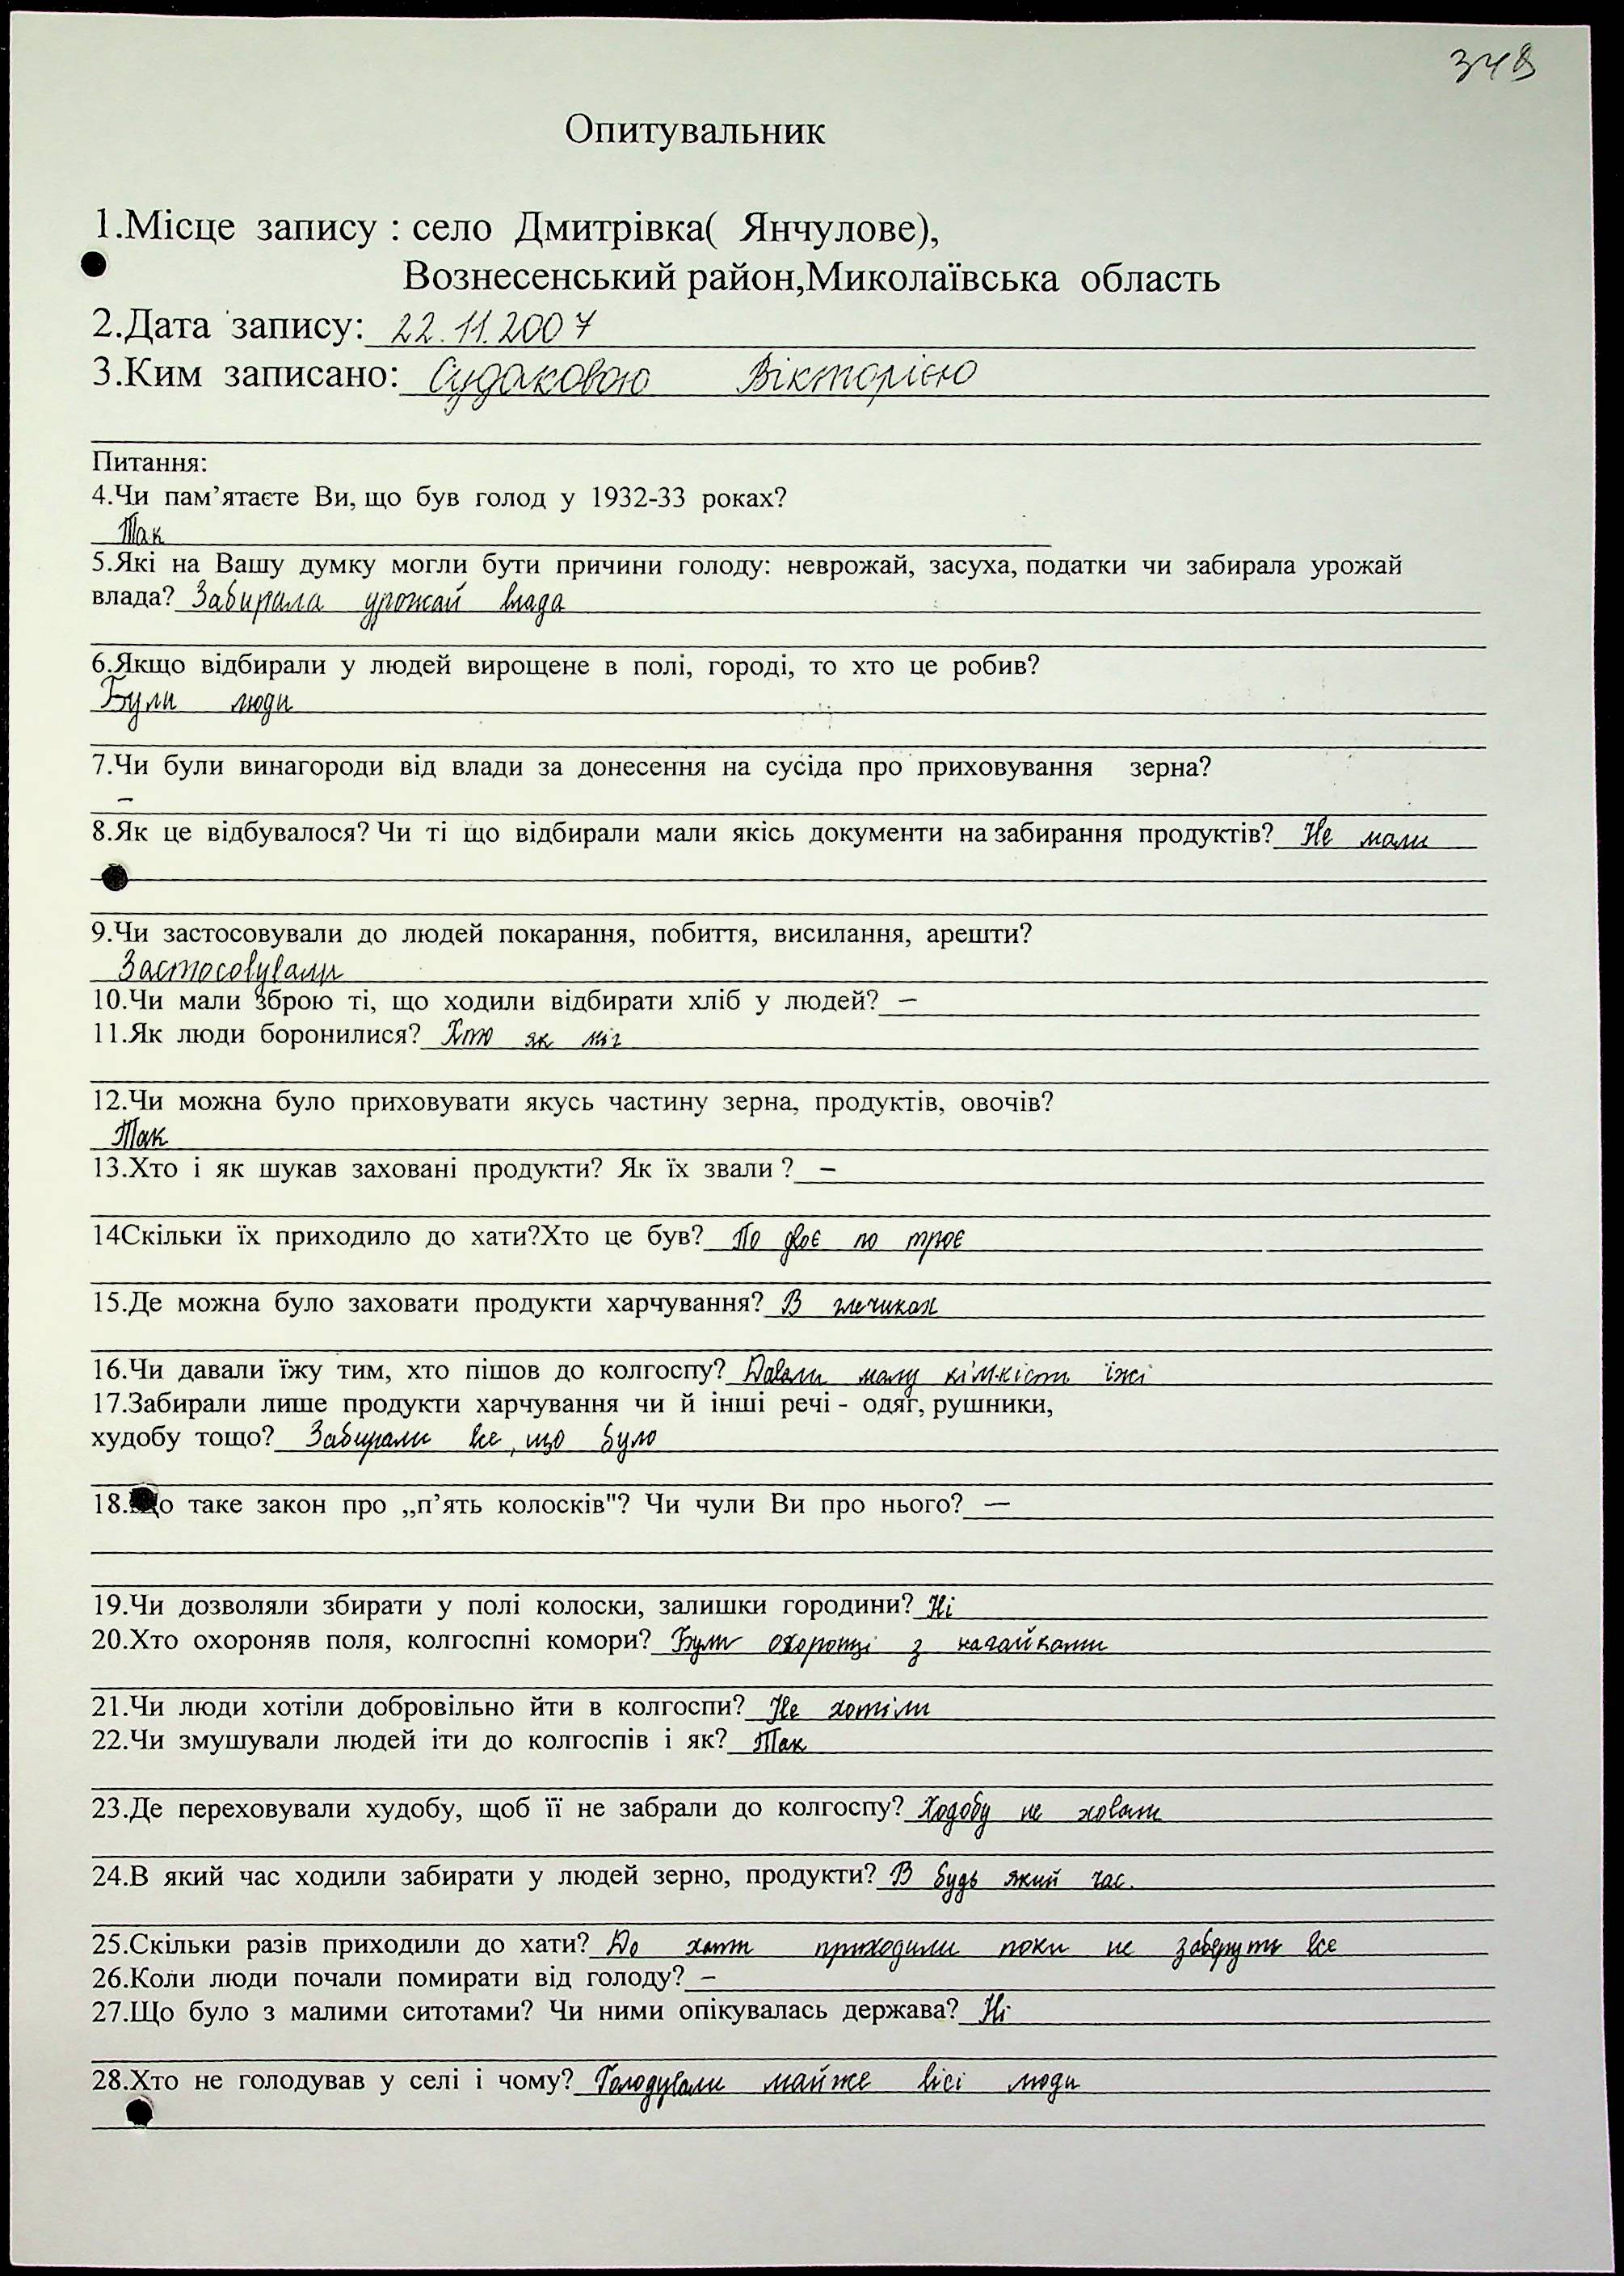 349
Опитувальник
1.Місце запису : село Дмитрівка( Янчулове),
Вознесенський район,Миколаївська область
2.Дата запису: 22.11.2007
3.Ким записано: Судаковою Вікторією
Питання:
4.Чи пам’ятаєте Ви, що був голод у 1932-33 роках?
Так
5.Які на Вашу думку могли бути причини голоду: неврожай, засуха, податки чи забирала урожай
влада? Забирала урожай влада
6.Якщо відбирали у людей вирощене в полі, городі, то хто це робив?
Були люди
7.Чи були винагороди від влади за донесення на сусіда про приховування зерна?
–
8.Як це відбувалося? Чи ті що відбирали мали якісь документи на забирання продуктів? Не мали
9.Чи застосовували до людей покарання, побиття, висилання, арешти?
Застосовували
10.Чи мали зброю ті, що ходили відбирати хліб у людей? –
11.Як люди боронилися? Хто як міг
12.Чи можна було приховувати якусь частину зерна, продуктів, овочів?
Так
13.Хто і як шукав заховані продукти? Як їх звали ? –
14Скільки їх приходило до хати?Хто це був? По двоє по троє
15.Де можна було заховати продукти харчування? В глечиках
16.Чи давали їжу тим, хто пішов до колгоспу? Давали малу кількість їжі
17.Забирали лише продукти харчування чи й інші речі - одяг, рушники,
худобу тощо? Забирали все, що було
18.Що таке закон про „п’ять колосків"? Чи чули Ви про нього? —
19.Чи дозволяли збирати у полі колоски, залишки городини? Ні
20.Хто охороняв поля, колгоспні комори? Були охоронці з нагайками
21.Чи люди хотіли добровільно йти в колгоспи? Не хотіли
22.Чи змушували людей іти до колгоспів і як? Так
23.Де переховували худобу, щоб її не забрали до колгоспу? Ходобу не ховали
24.В який час ходили забирати у людей зерно, продукти? В будь який час.
25.Скільки разів приходили до хати? До хати приходили поки не заберуть все
26.Коли люди почали помирати від голоду? –
27.Що було з малими ситотами? Чи ними опікувалась держава? Ні
28.Хто не голодував у селі і чому? Голодували майже всі люди